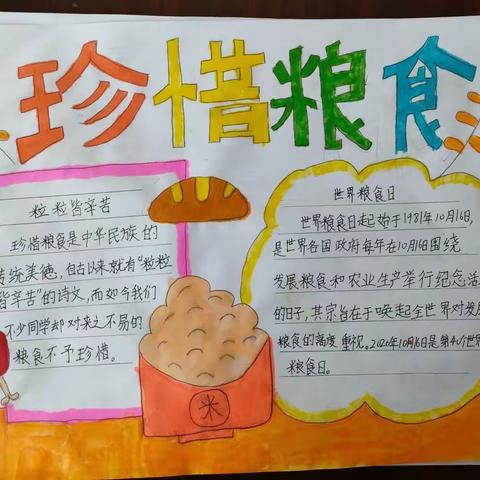 珍惜粮食
粒粒皆辛苦
珍惜粮食是中华民族的
传统美德,自古以来就有“粒粒
皆辛苦”的诗文,而如今我们
不少同学却对来之不易的
粮食不予珍惜。
米
世界粮食日
世界粮食日起始于1981年10月16日,
是世界各国政府每年在10月16日围绕
发展粮食和农业生产举行纪念活
的日子,其宗旨在于唤起全世界对发展
粮食的高度重视。2020年10月16日是第40个世界
粮食日。